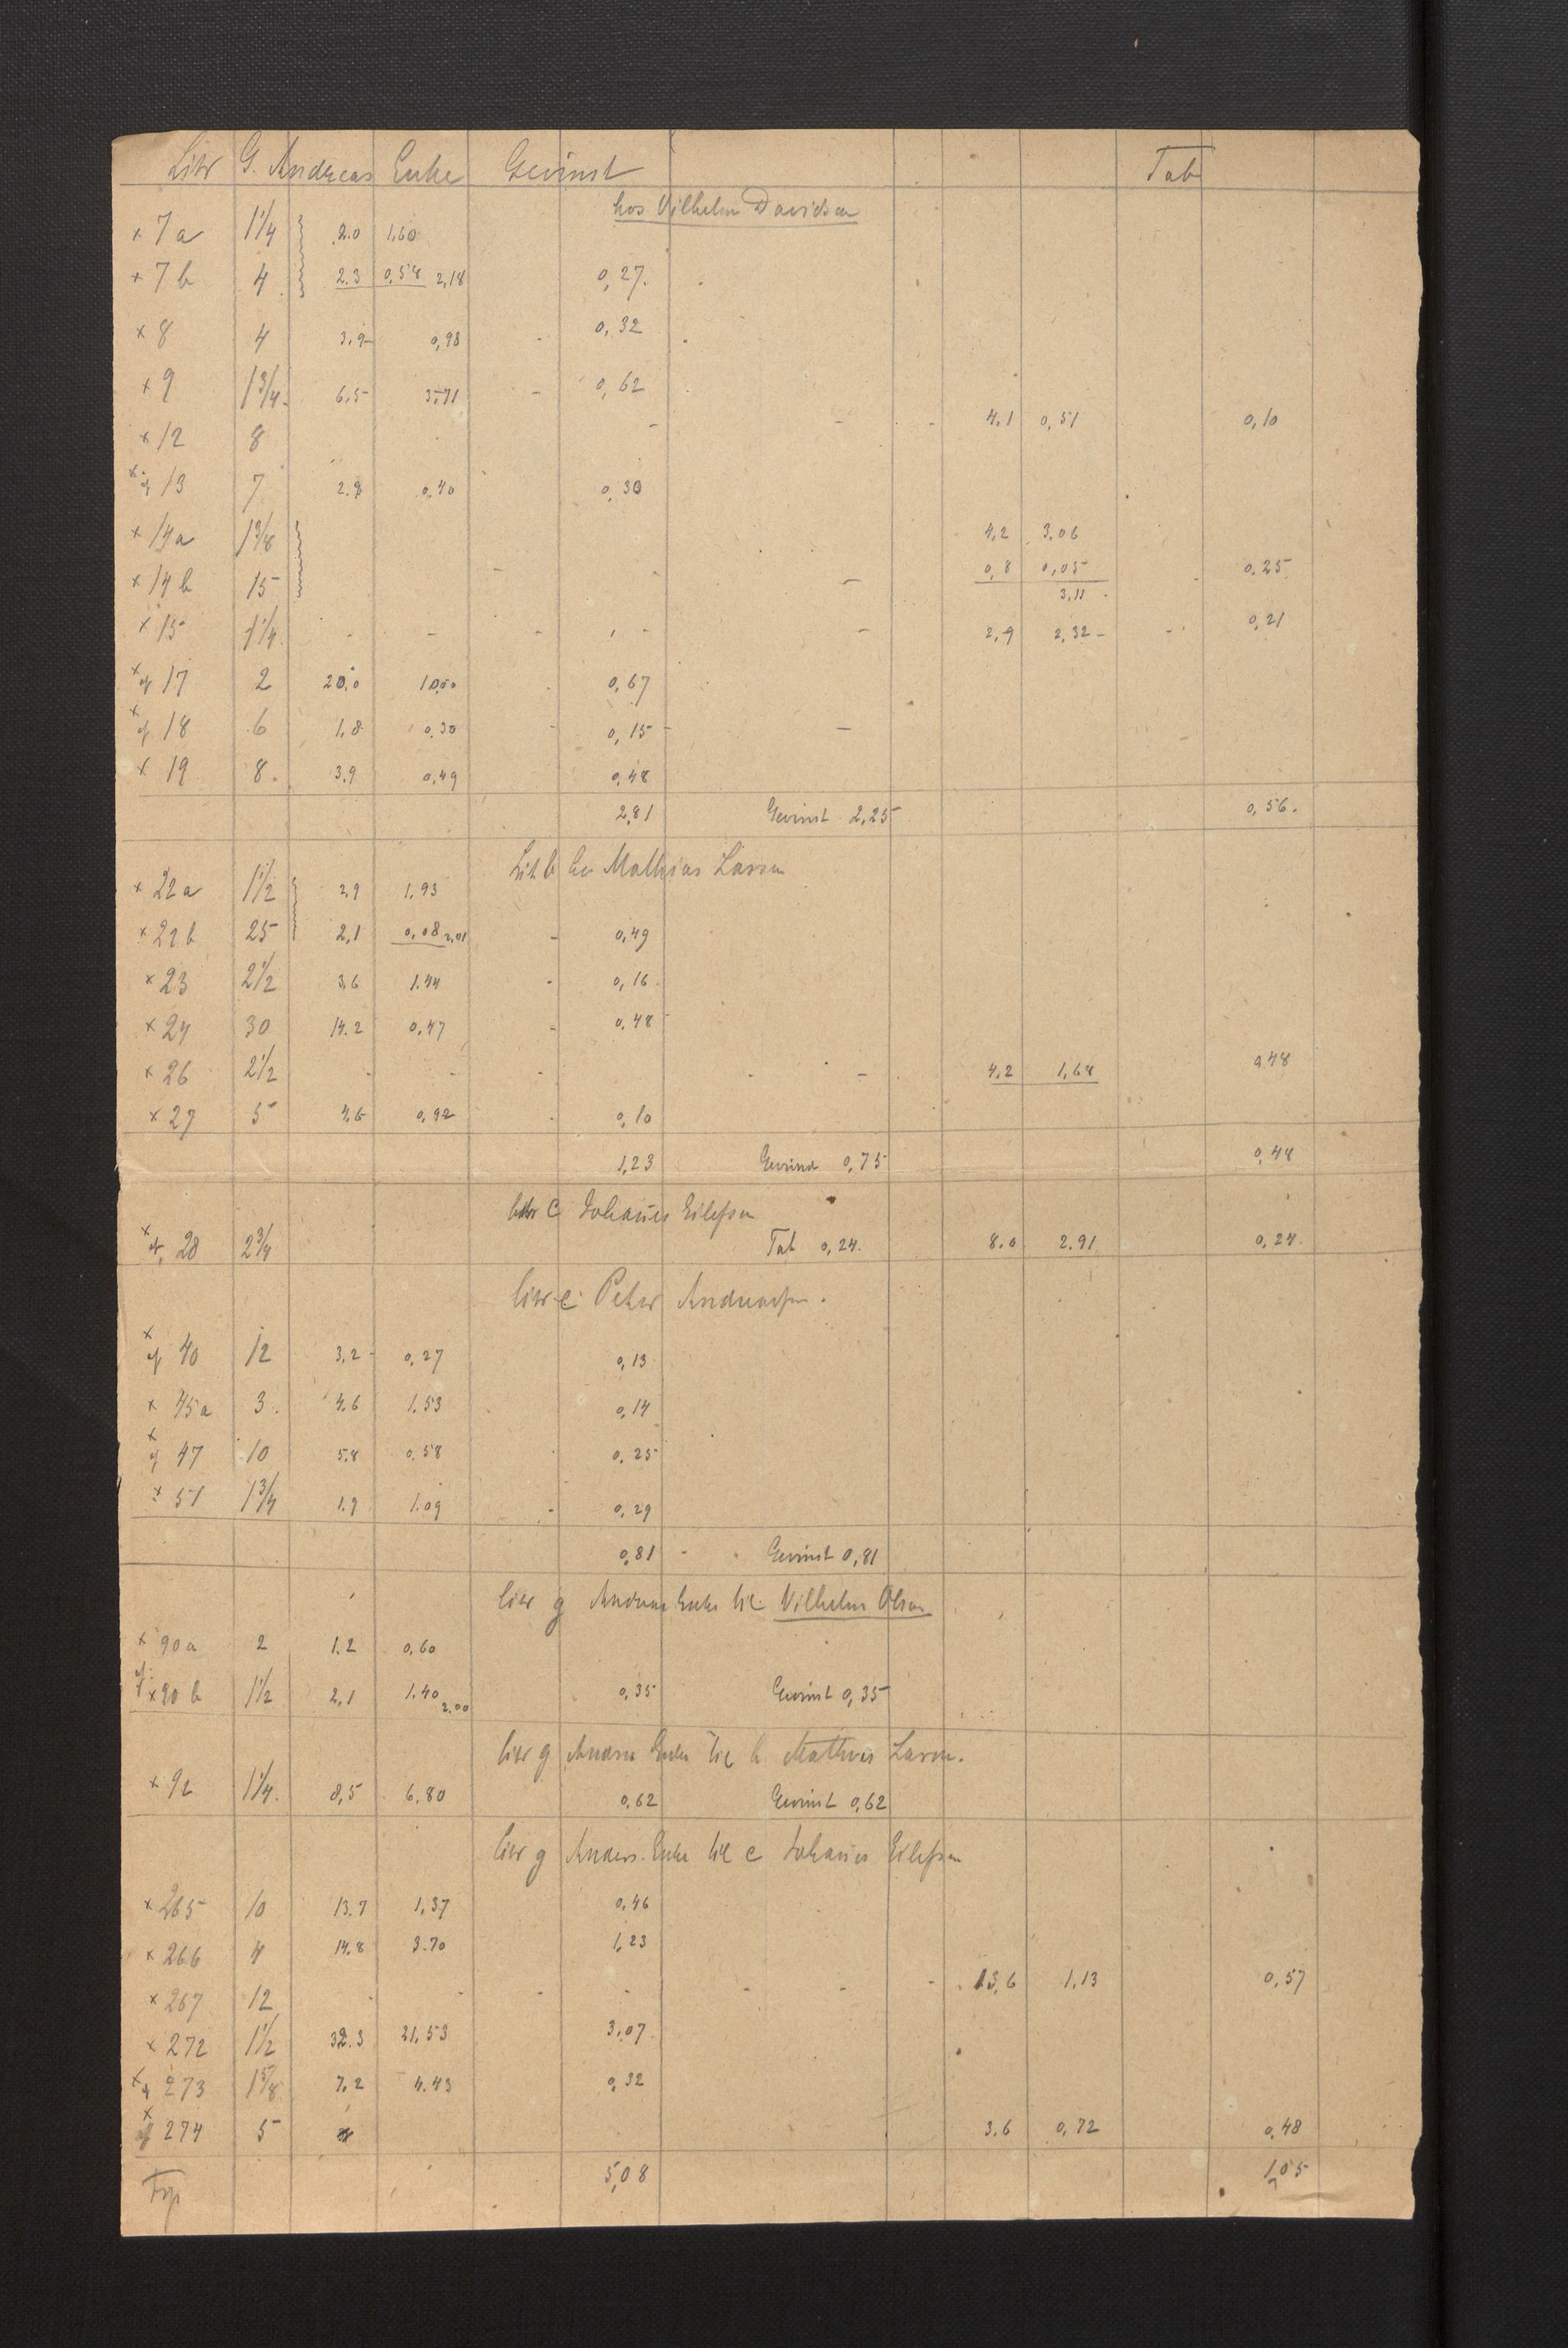 Litr G. Andreas Enke Gevinst Tab
hos Vilhelm Davidsen
× 7 a 1 1/4 2.0 1,60
× 7 b 4 2.3 0,58 2,18 0,27.
× 8 4 3,9 0,98 - 0,32
× 9 1 3/4 6,5 3,71 - 0,62
× 12 8 - - - 4,1 0,51 0,10
× af 13 7 2.8 0,40 0,30
× 14 a 1 3/8 4,2 3,06
× 14 b 15 - - - 0,8 0,05 0,25
3,11
× 15 1 1/4 - - - - - 2,9 2,32 - - 0,21
× af 17 2 20,0 10,00 0,67
× af 18 6 1,8 0,30 - 0,15 -
× 19 8. 3,9 0,49 0,48
2,81 Gevinst 2,25 0,56.
Litr b hos Mathias Larsen
× 22 a 1 1/2 2,9 1,93
× 22 b 25 2,1 0,08 2,01 - 0,49
× 23 2 1/2 3,6 1.44 - 0,16
× 24 30 14.2 0,47 - 0,48
× 26 2 1/2 - - - - - 4,2 1,68 0,48
× 27 5 4,6 0,92 - 0,10
1,23 Gevinst 0,75 0,48
Litr c Johanes Eilefsen
× af 28 2 3/4 Tab 0,24. 8.0 2.91 0,24.
Litr e Peter Andreassen.
× af 40 12 3,2 - 0,27 0,13
× 45 a 3. 4.6 1.53 0,14
× af 47 10 5.8 0,58 0,25
× 51 1 3/4 1.9 1.09 - 0,29
0,81 - Gevinst 0,81
Litr g Andreas Enke til Vilhelm Olsen
× 90 a 2 1.2 0,60
af × 90 b 1 1/2 2,1 1.40 2.00 0,35 Gevinst 0,35
Litr g Andreas Enke til b Mathias Larsen.
× 92 1 1/4. 8,5 6,80 0,62 Gevinst 0,62
Litr g Andreas Enke til c Johanes Eilefsen
× 265 10 13.7 1,37 0,46
× 266 4 14.8 3.70 1,23
× 267 12 - - - - - - - 13,6 1,13 0,57
× 272 1 1/2 32.3 21,53 3,07
× af 273 1 5/8 7.2 4.43 0,32
× af 274 5 3,6 0,72 0,48
5,08 1,05